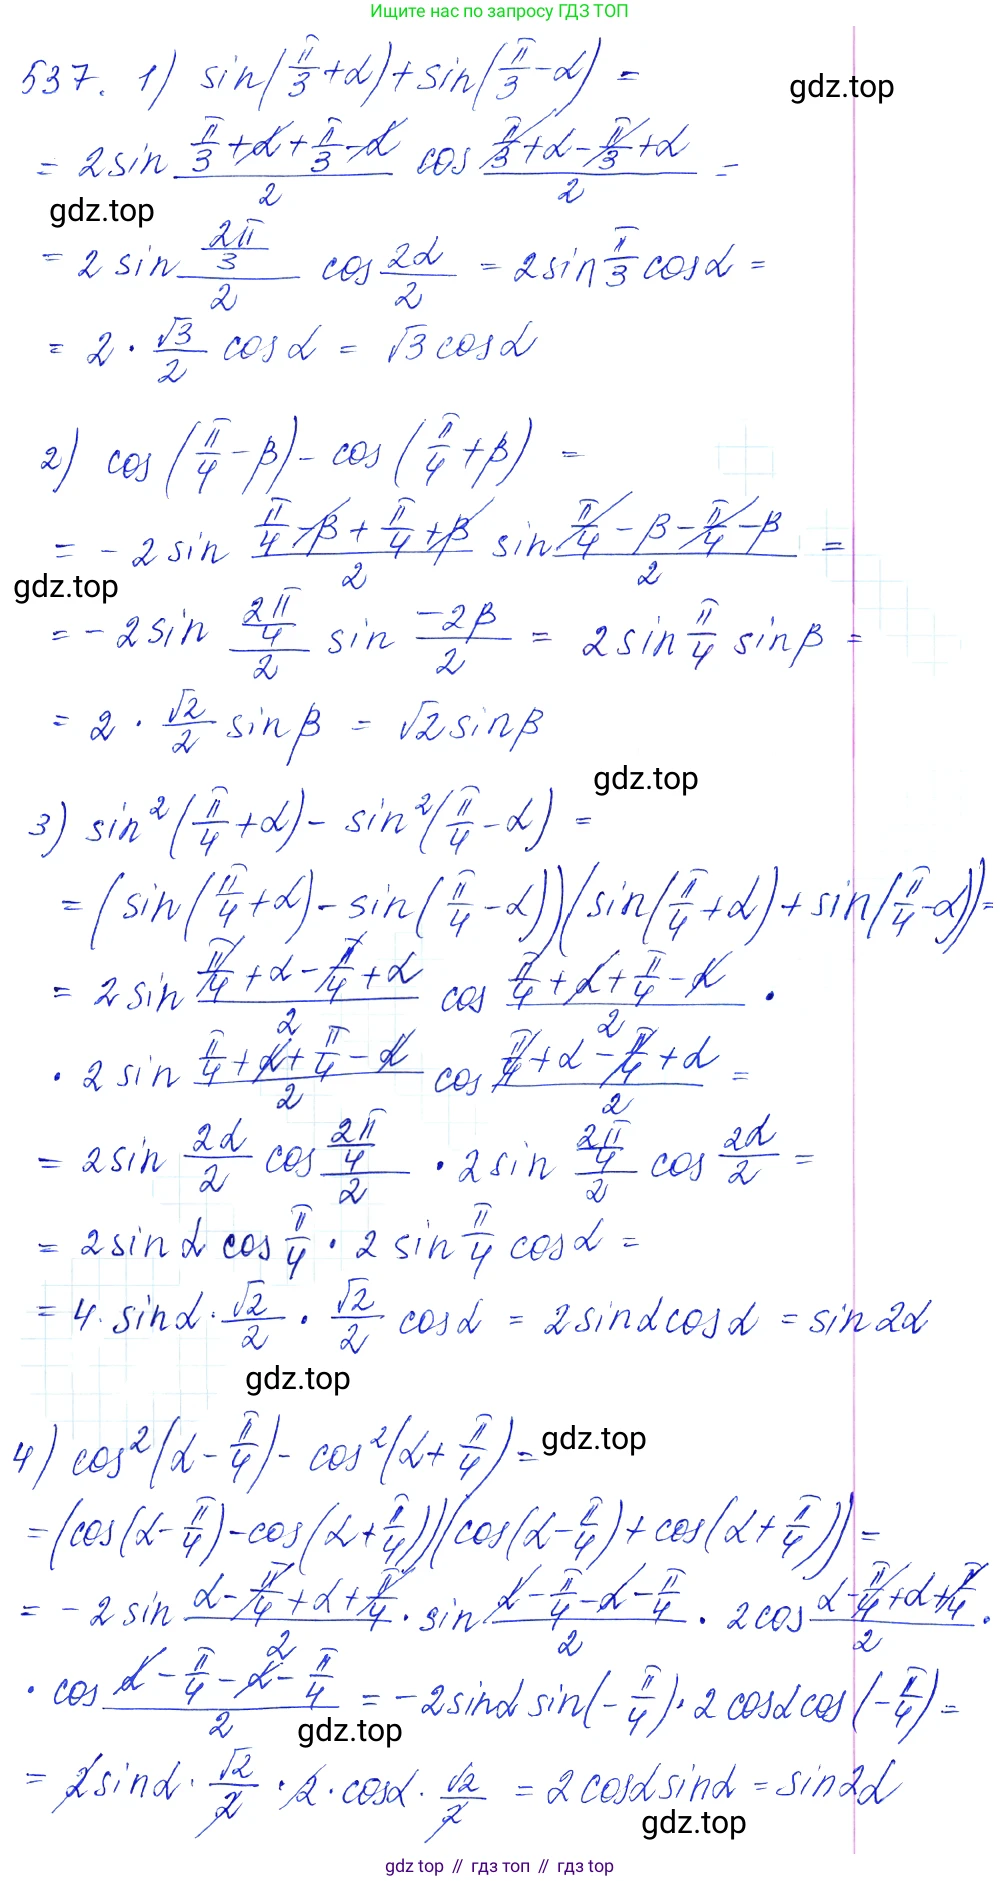 Ищите нас по запросу ГДЗ ТОП
537. 1) sin(π/3+α)+sin(π/3-α) =
gdz.top
= 2sin (π/3+α+π/3-α)/2 cos (π/3+α-π/3+α)/2 =
gdz.top
= 2 sin (2π/3)/2 cos 2α/2 = 2sin π/3 cosα =
= 2 · √3/2 cosα = √3cosα
2) cos(π/4-β)-cos(π/4+β) =
= -2sin (π/4-β+π/4+β)/2 sin (π/4-β-π/4-β)/2 =
gdz.top
= -2sin (2π/4)/2 sin (-2β)/2 = 2sin π/4 sinβ =
= 2 · √2/2 sinβ = √2sinβ
gdz.top
3) sin²(π/4+α)- sin²(π/4-α) =
= (sin(π/4+α)-sin(π/4-α))(sin(π/4+α)+sin(π/4-α)) =
= 2sin (π/4+α-π/4+α)/2 cos (π/4+α+π/4-α)/2 ·
· 2sin (π/4+α+π/4-α)/2 cos (π/4+α-π/4+α)/2 =
= 2sin 2α/2 cos (2π/4)/2 · 2sin (2π/4)/2 cos 2α/2 =
= 2sinα cos π/4 · 2 sin π/4 cosα =
= 4·sinα·√2/2 · √2/2 cosα = 2sinαcosα = sin2α
gdz.top
4) cos²(α-π/4)- cos²(α+π/4) =
gdz.top
= (cos(α-π/4)-cos(α+π/4))(cos(α-π/4)+cos(α+π/4)) =
= -2sin (α-π/4+α+π/4)/2 · sin (α-π/4-α-π/4)/2 · 2cos (α-π/4+α+π/4)/2 ·
· cos (α-π/4-α-π/4)/2 = -2sinα sin(-π/4)·2cosαcos(-π/4) =
gdz.top
= 2sinα·√2/2 · 2·cosα·√2/2 = 2cosαsinα = sin2α
gdz.top
gdz top // гдз топ // гдз top